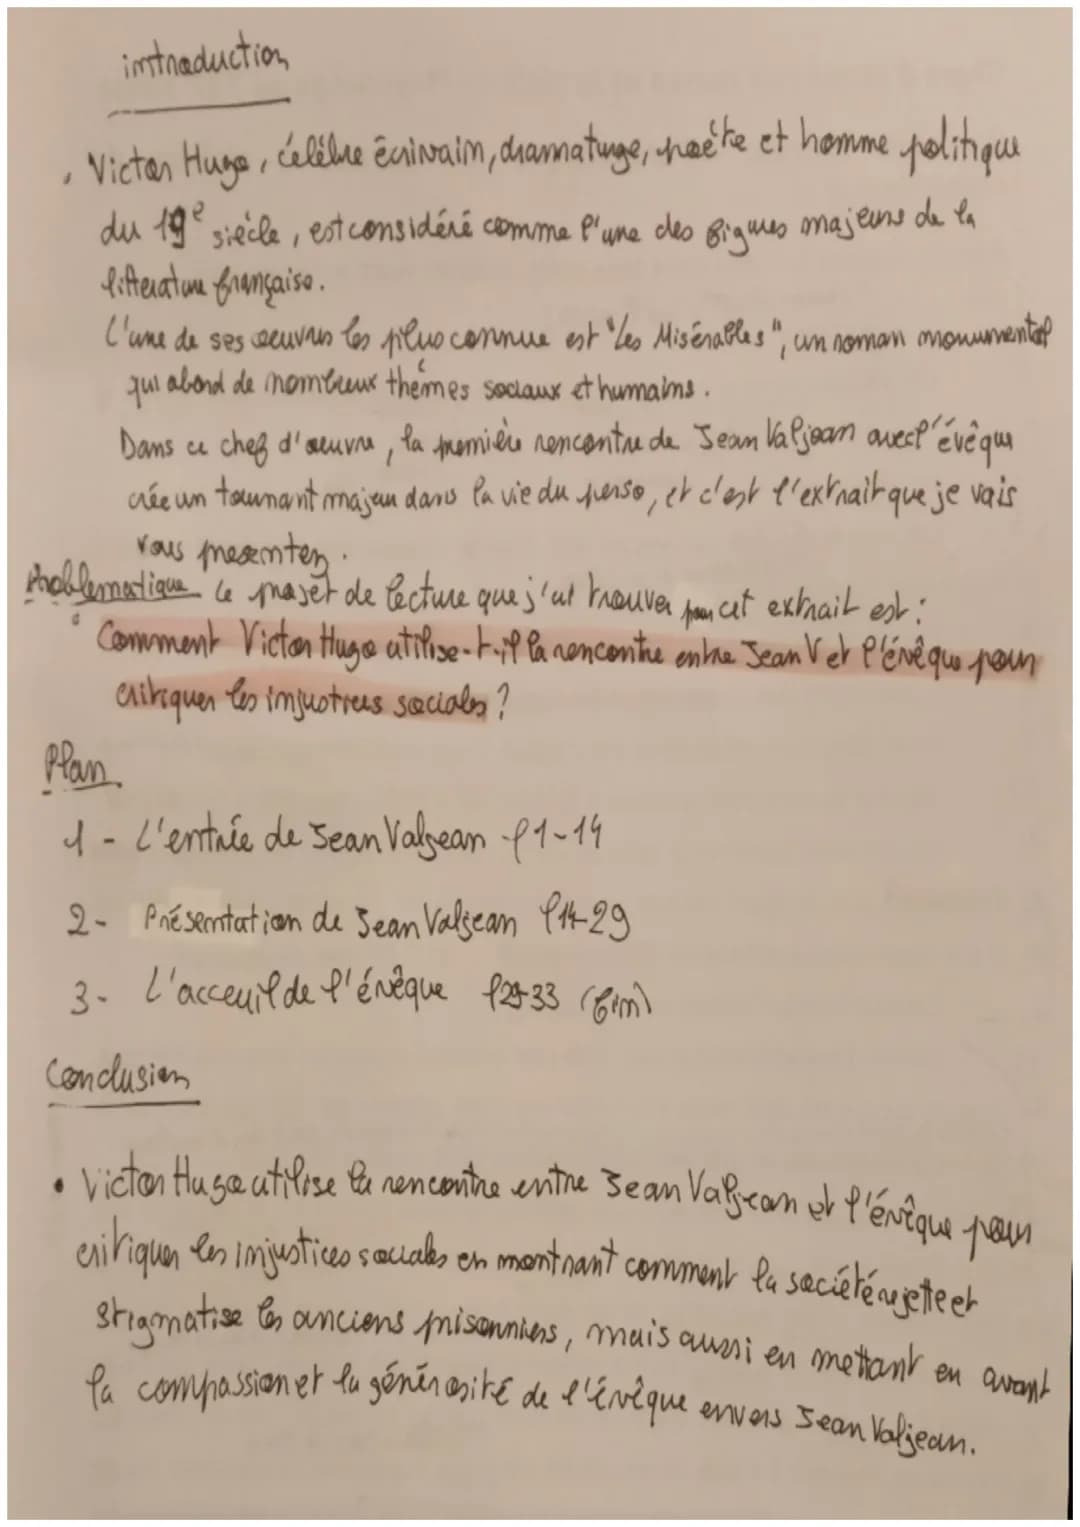 introduction
Victor Hugo, célèbre écrivain, dramaturge, poète et homme politique
du 19e siècle, est considéré comme l'une des figures majeurs de la
litterature française.
L'une de ses oeuvres les plus connue est "Les Misérables", un roman monumental
qui abord de nombreux thèmes sociaux et humains.
Dans ce chef d'oeuvre, la première rencontre de Jean Valjean avec l'évêque
crée un tournant majeur dans la vie du perso, et c'est l'extrait que je vais
vous presenter.
Problematique Le projet de lecture que j'ai trouver pour cet extrait est :
Comment Victor Hugo utilise-t-il la rencontre entre Jean V et l'évêque pour
critiquer les injustices sociales ?
Plan
1 - L'entrée de Jean Valjean l 1-14
2 - Présentation de Jean Valjean l14-29
3 - L'acceuil de l'évêque l29-33 (fin)
Conclusion
• Victor Hugo utilise la rencontre entre Jean Valjean et l'évêque pour
critiquer les injustices sociales en montrant comment la société rejette et
stigmatise les anciens prisonniers, mais aussi en mettant en avant
la compassion et la générosité de l'évêque envers Jean Valjean.